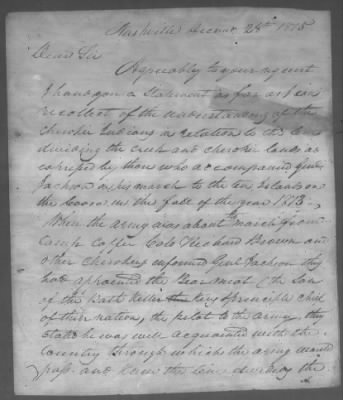 Nashville Decemr 28th 1815
Dear Sir
Agreeably to your request
I hand you a Statement as far as I can
recollect of the understanding of the
Cherokee Indians in relation to the line
dividing the creek and cherokee lands, as
expressed by those who accompanied Genl
Jackson on his march to the ten islands on
the Coosa, in the fall of the year 1813.
When the army was about to march from
Camp Coffee Colo Richard Brown and
other Cherokees informed Genl Jackson they
had appointed the Bearmeat (the Son
of the Path Killer Key principle chief
of their nation, the pilot to the army, they
stated he was well acquainted with the
Country through which the army would
pass and knew the line dividing the